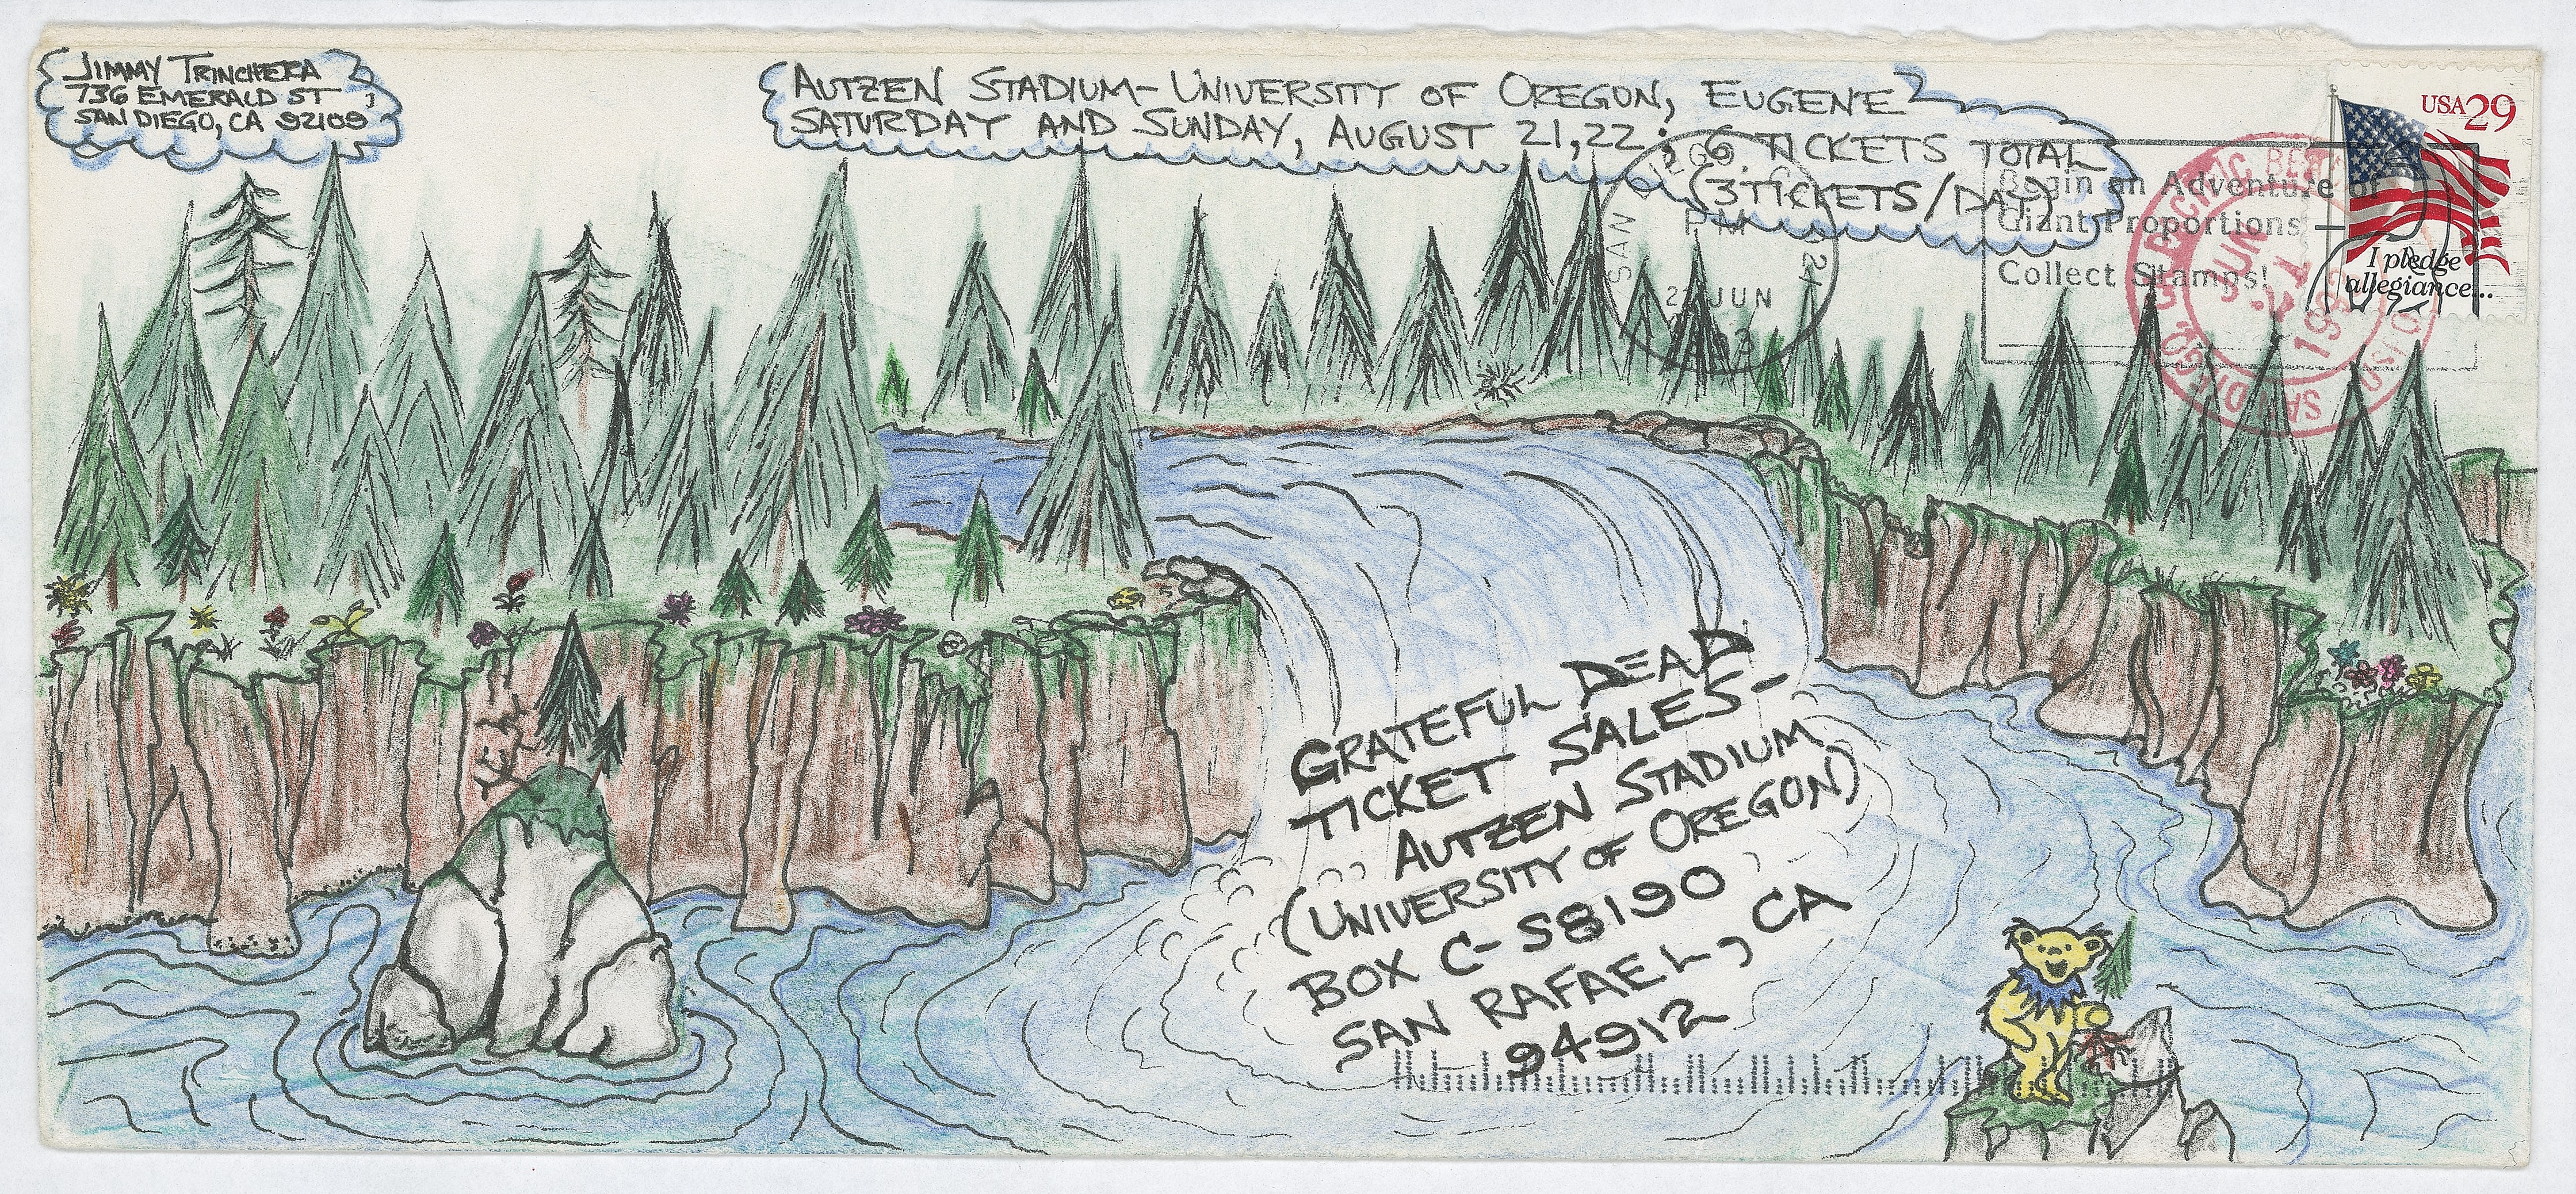 JIMMY TRINCHERA
736 EMERALD ST
SAN DIEGO, CA 92109
AUTZEN STADIUM-UNIVERSITY OF OREGON, EUGENE
SATURDAY AND SUNDAY, AUGUST 21,22; 6 TICKETS TOTAL
(3 TICKETS/DAY)
SAN DIEGO
PM
JUN
Begin an Adventure of
Giant Proportions —
Collect Stamps!
USA 29
I pledge
allegiance...
PACIFIC
SAN DIEGO,
JUN
GRATEFUL DEAD
TICKET SALES-
AUTZEN STADIUM
(UNIVERSITY OF OREGON)
BOX C-S8190
SAN RAFAEL, CA
94912